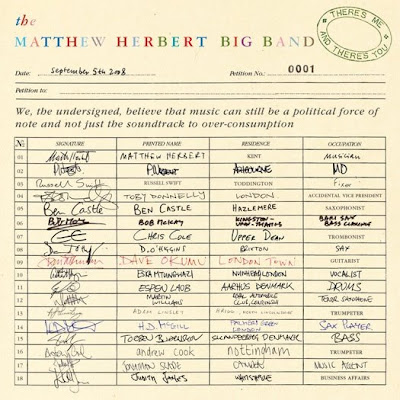 the
MATTHEW HERBERT BIG BAND
THERE'S ME AND THERE'S YOU
Date: September 5th 2008 Petition No.: 0001
Petition to:
We, the undersigned, believe that music can still be a political force of
note and not just the soundtrack to over-consumption
No SIGNATURE PRINTED NAME RESIDENCE OCCUPATION
01 MATTHEW HERBERT KENT Musician
02 ASHBOURNE MD
03 Russell Swift RUSSELL SWIFT TODDINGTON Fixer
04 TOBY DONNELLY LONDON ACCIDENTAL VICE PRESIDENT
05 Ben Castle BEN CASTLE HAZLEMERE SAXOPHONIST
06 BOB McKAY KINGSTON-UPON-THAMES BARI SAX BASS CLARINET
07 CHRIS COLE UPPER DEAN TROMBONIST
08 D.O'HIGGINS BRIXTON SAX
09 DAVE OKUMU LONDON TOWN GUITARIST
10 ESKA MTUNGWAZI LONDON VOCALIST
11 ESPEN LAUB AARHUS DENMARK DRUMS
12 MARTIN WILLIAMS TENOR SAXOPHONE
13 ADAM LINSLEY NORTH LINCOLNSHIRE TRUMPETER
14 H.D. McGILL PALMERS GREEN LONDON SAX PLAYER
15 SKANDERBORG DENMARK BASS
16 andrew cook nottingham TRUMPETER
17 JONATHAN SLADE MUSIC AGENT
18 JUDITH WHITSTABLE BUSINESS AFFAIRS